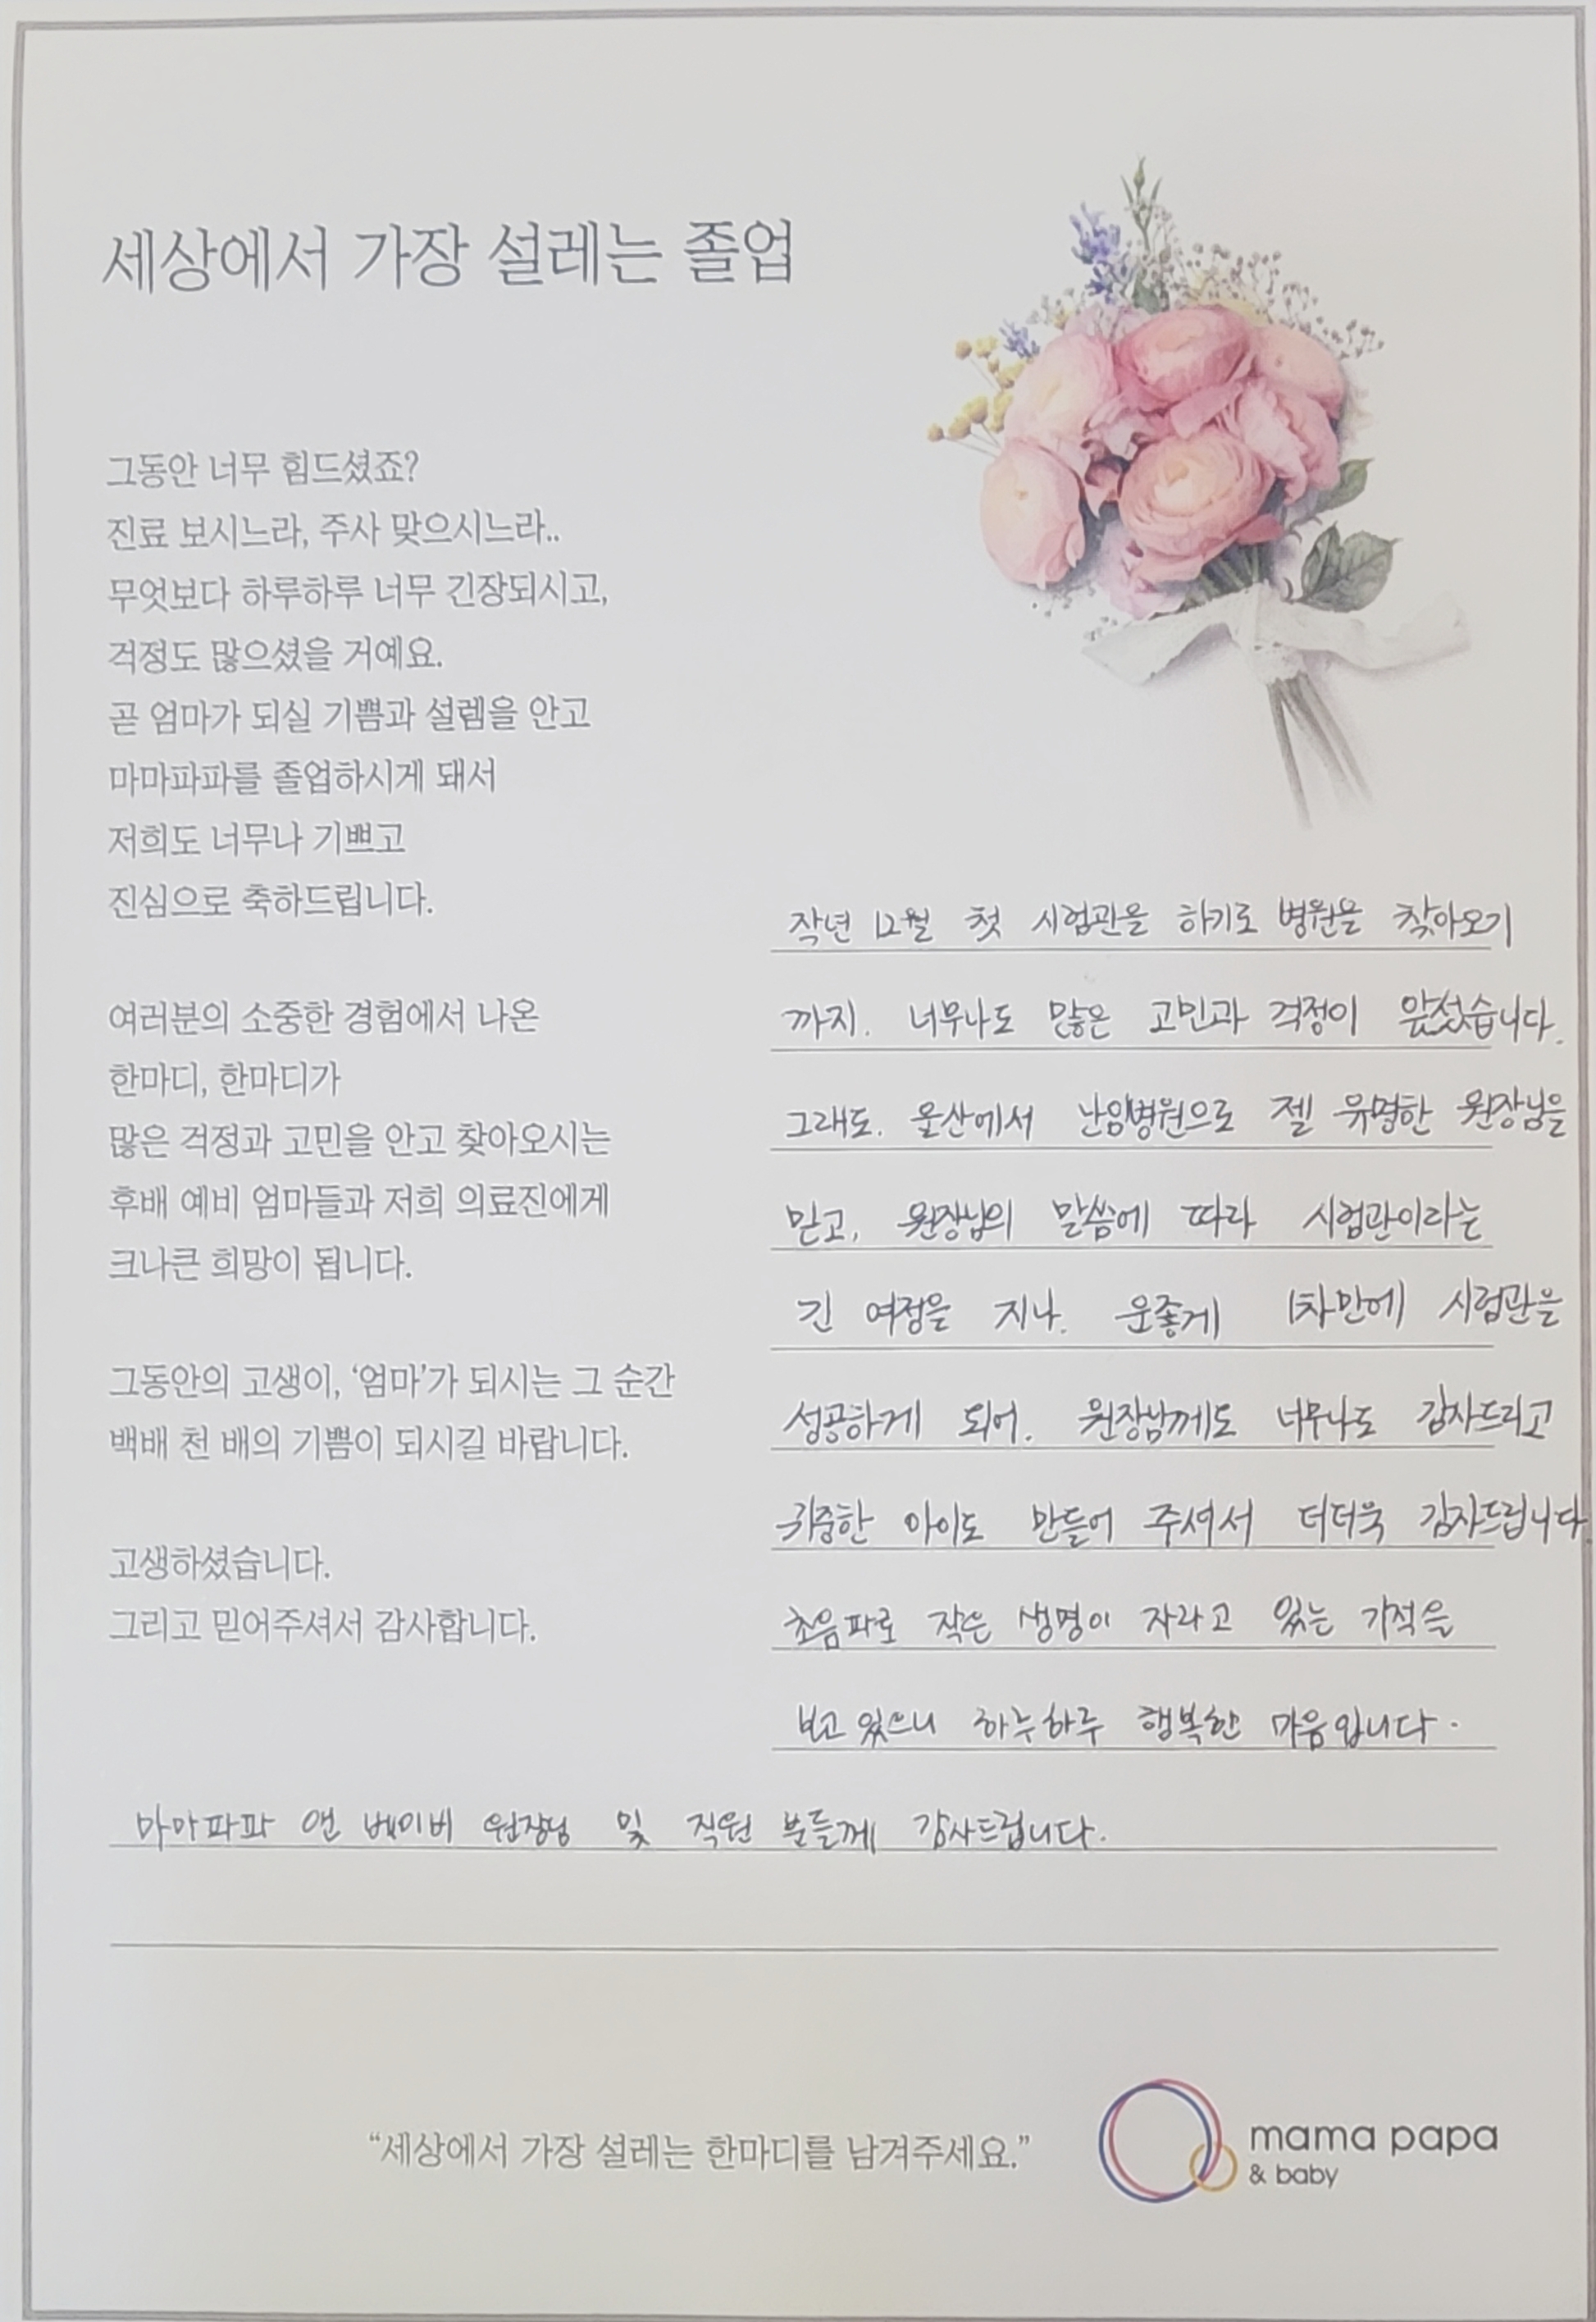 세상에서 가장 설레는 졸업
그동안 너무 힘드셨죠?
진료 보시느라, 주사 맞으시느라..
무엇보다 하루하루 너무 긴장되시고,
걱정도 많으셨을 거예요.
곧 엄마가 되실 기쁨과 설렘을 안고
마마파파를 졸업하시게 돼서
저희도 너무나 기쁘고
진심으로 축하드립니다.
여러분의 소중한 경험에서 나온
한마디, 한마디가
많은 걱정과 고민을 안고 찾아오시는
후배 예비 엄마들과 저희 의료진에게
크나큰 희망이 됩니다.
그동안의 고생이, ‘엄마’가 되시는 그 순간
백배 천 배의 기쁨이 되시길 바랍니다.
고생하셨습니다.
그리고 믿어주셔서 감사합니다.
작년 12월 첫 시험관을 하기로 병원을 찾아오기
까지. 너무나도 많은 고민과 걱정이 앞섰습니다.
그래도. 울산에서 난임병원으로 젤 유명한 원장님을
믿고, 원장님의 말씀에 따라 시험관이라는
긴 여정을 지나. 운좋게 1차만에 시험관을
성공하게 되어. 원장님께도 너무나도 감사드리고
귀중한 아이도 만들어 주셔서 더더욱 감사드립니다.
초음파로 작은 생명이 자라고 있는 기적을
보고 있으니 하루하루 행복한 마음입니다.
마마파파 앤 베이비 원장님 및 직원 분들께 감사드립니다.
“세상에서 가장 설레는 한마디를 남겨주세요.”
mama papa
& baby